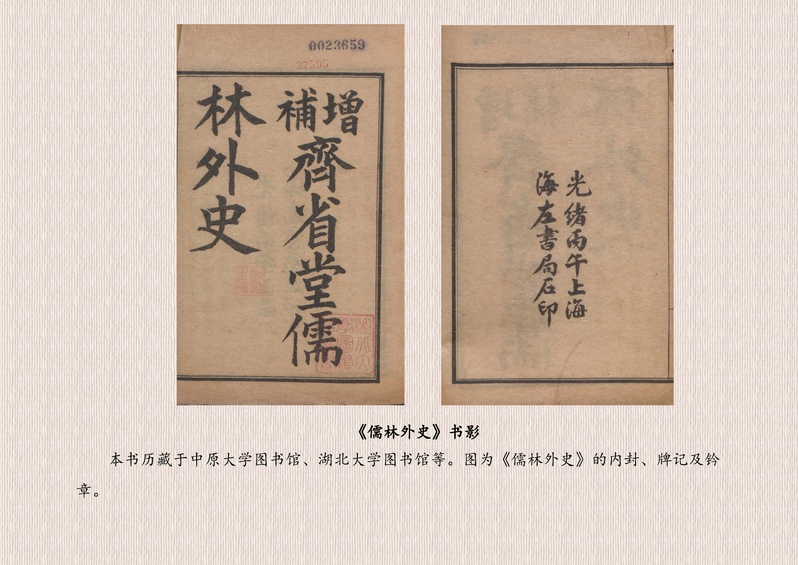 0023659
37595
增補齊省堂儒
林外史
光緒丙午上海
海左書局石印
《儒林外史》书影
本书历藏于中原大学图书馆、湖北大学图书馆等。图为《儒林外史》的内封、牌记及钤
章。